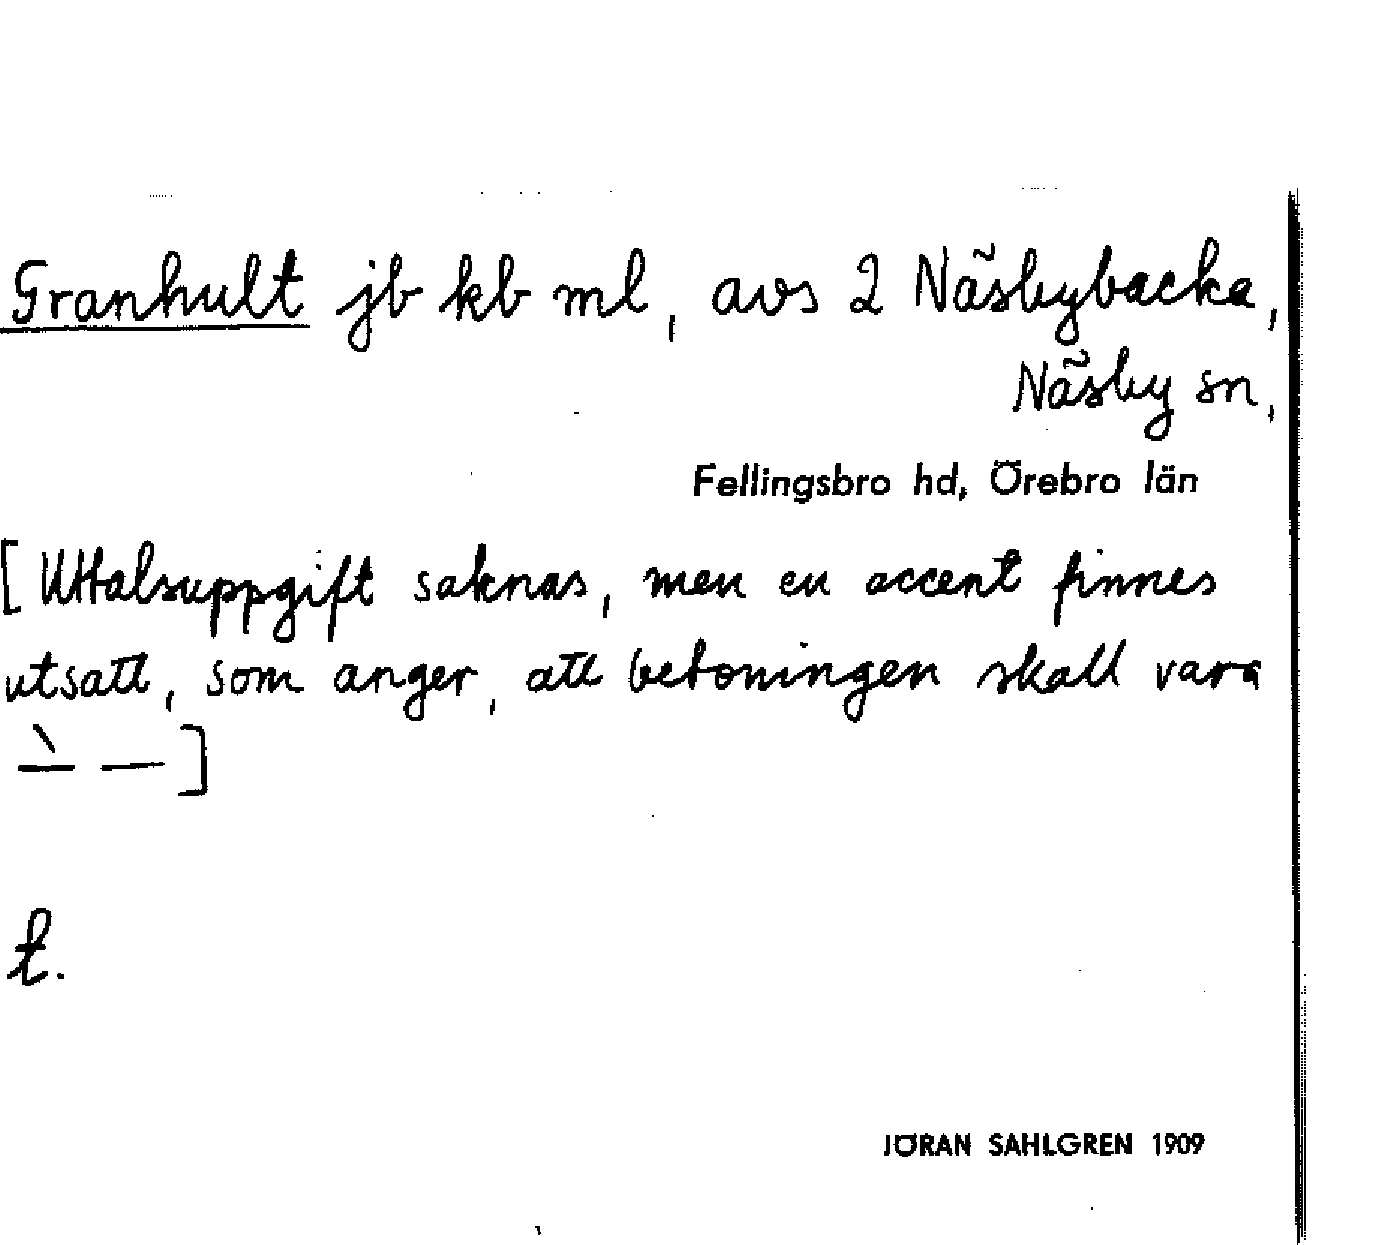 Granhult jb kb ml, avs 2 Näsbybacka,
Näsby sn,
Fellingsbro hd, Örebro län
[Uttalsuppgift saknas, men en accent finnes
utsatt, som anger, att betoningen skall vara
—̀ —]
t.
JÖRAN SAHLGREN 1909